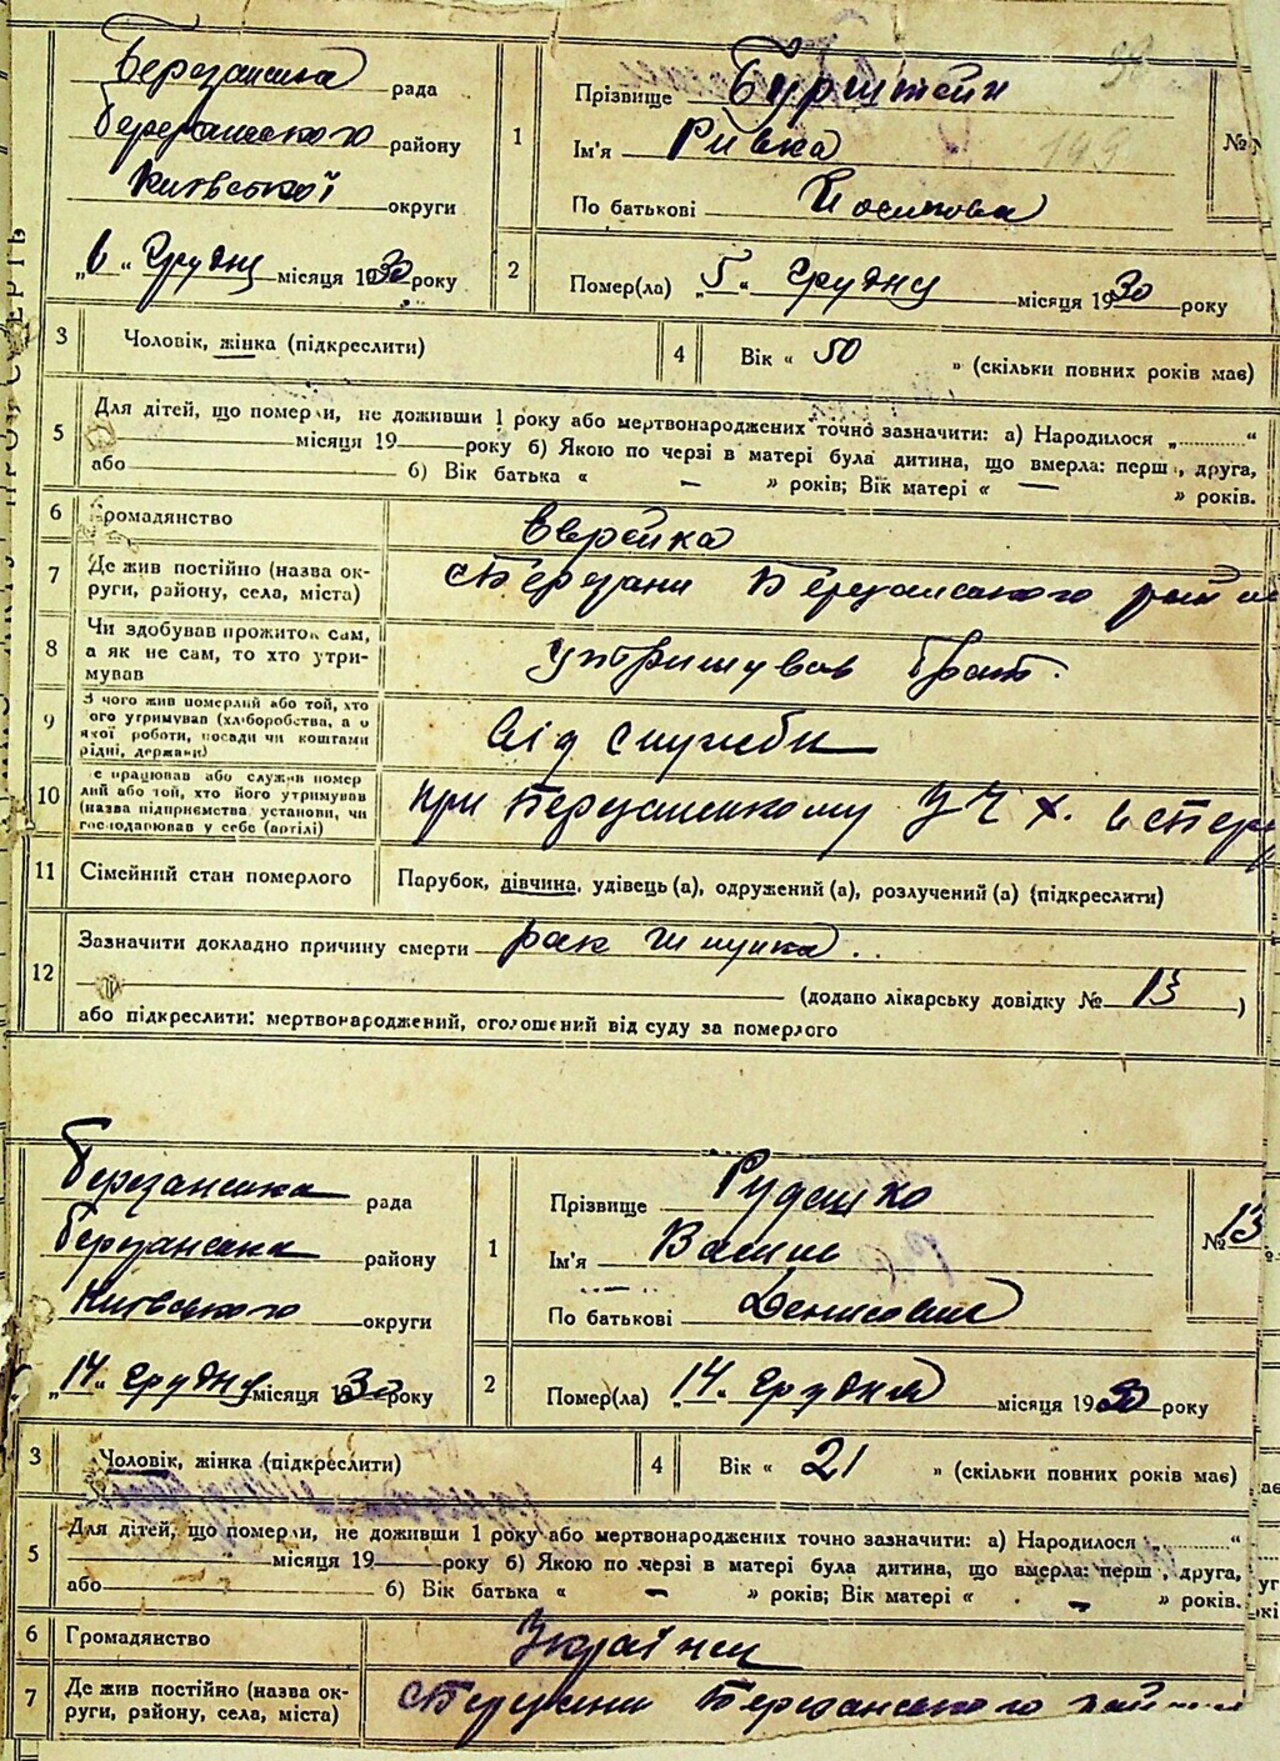 Березанська рада
Березанського району
Київської округи
„6“ Грудну місяця 1930 року
1
Прізвище Бурштейн
Ім'я Ривка
По батькові Йосипова
№
2
Помер(ла) „5“ Грудну місяця 1930 року
3 Чоловік, жінка (підкреслити)
4 Вік « 50 » (скільки повних років має)
5 Для дітей, що померли, не доживши 1 року або мертвонароджених точно зазначити: а) Народилося „ “
місяця 19 року б) Якою по черзі в матері була дитина, що вмерла: перш , друга,
або 6) Вік батька « – » років; Вік матері « — » років.
6 Громадянство Еврейка
7 Де жив постійно (назва ок-
руги, району, села, міста) с Березани Березанського
8 Чи здобував прожиток сам,
а як не сам, то хто утри-
мував утримував брат.
9 З чого жив померлий або той, хто
ого утримував (хліборобства, а о
якої роботи, посади чи коштами
рідні, держави) від служби
10 е працював або служив помер
лий або той, хто його утримував
(назва підприємства установи, чи
господарював у себе (артілі) при Березанському
11 Сімейний стан померлого Парубок, дівчина, удівець (а), одружений (а), розлучений (а) (підкреслити)
12 Зазначити докладно причину смерти рак шлунка.
(додано лікарську довідку № 13 )
або підкреслити: мертвонароджений, оголошений від суду за померлого
Березанська рада
Березанська району
Київського округи
„14“ грудну місяця 1930 року
1
Прізвище Рудешко
Ім'я Василь
По батькові Денисович
№ 13
2
Помер(ла) „14“ грудня місяця 1930 року
3 Чоловік, жінка (підкреслити)
4 Вік « 21 » (скільки повних років має)
5 Для дітей, що померли, не доживши 1 року або мертвонароджених точно зазначити: а) Народилося „ “
місяця 19 року б) Якою по черзі в матері була дитина, що вмерла: перш , друга,
або 6) Вік батька « – » років; Вік матері « – » років.
6 Громадянство Українець
7 Де жив постійно (назва ок-
руги, району, села, міста) с Березани Березанського